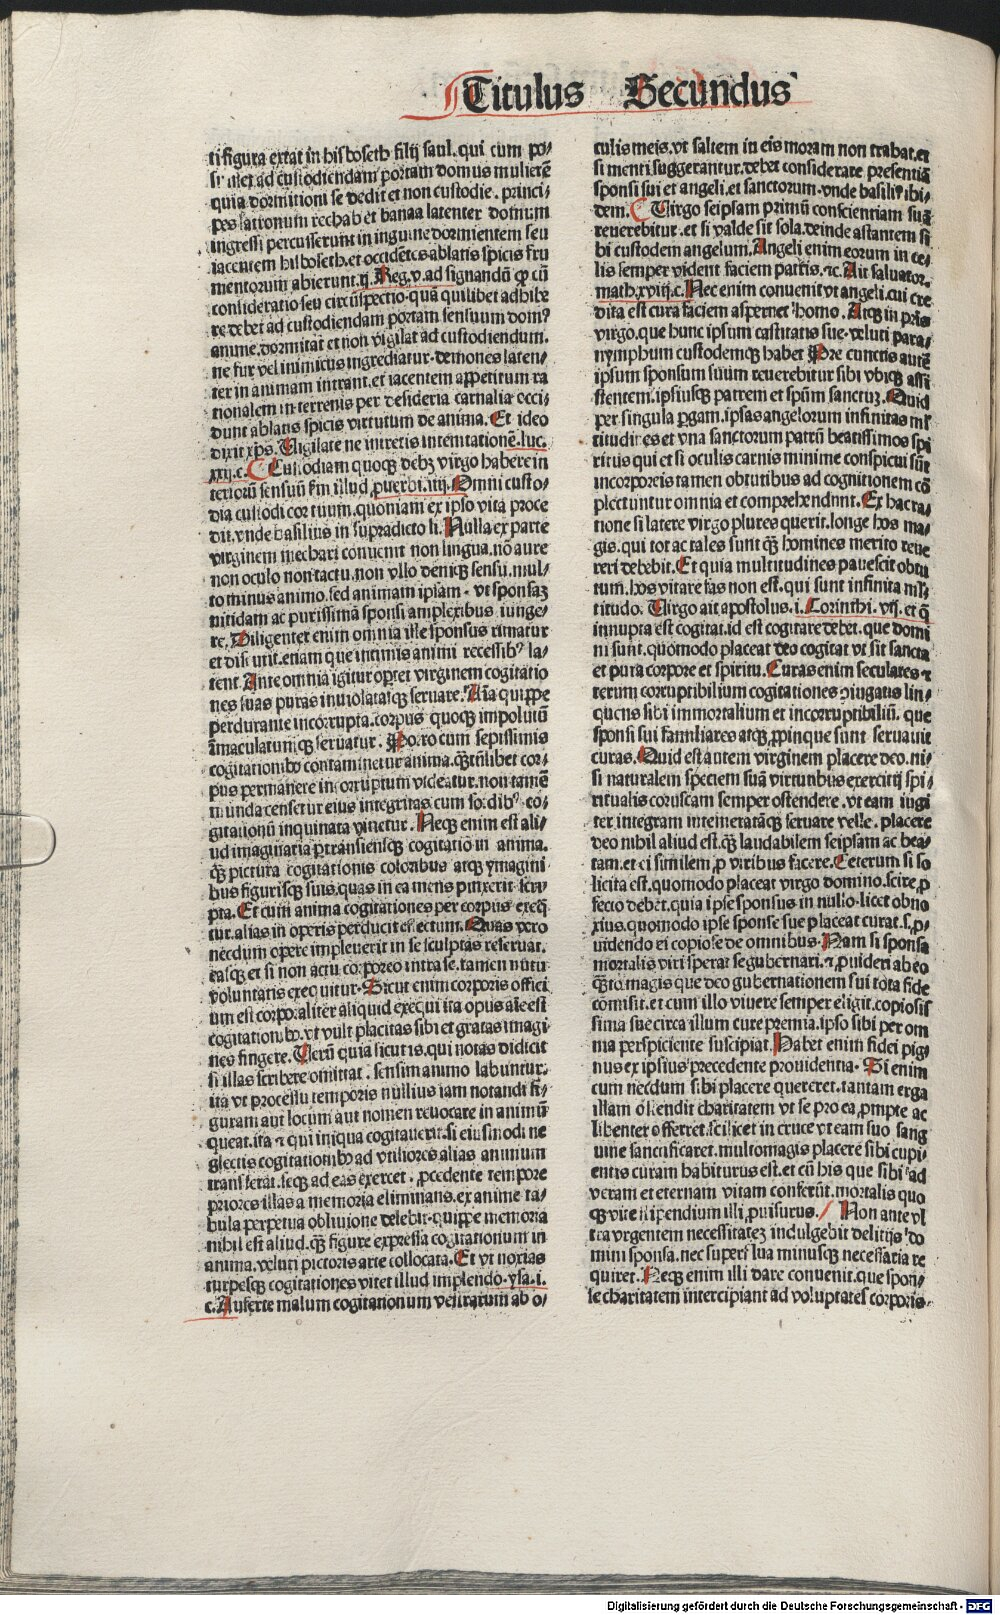 Titulus Secundus
ti figura extat in hisboseth filij saul. qui cum po-
suisset ad custodiendam portam domus mulierē
quia dormitioni se dedit et non custodie. princi-
pes latronum rechab et banaa latenter domum
ingressi percusserunt in inguine dormientem seu
iacentem hisboseth. et occidentes ablatis spicis fru
mentorum abierunt. ij. Reg. v. ad signandū ꝙ cū
consideratio seu circūspectio qua quilibet adhibe
re debet ad custodiendam portam sensuum domꝰ
anime. dormitat et non vigilat ad custodiendum.
ne fur vel inimicus ingrediatur. demones laten-
ter in animam intrant. et iacentem appetitum ra
tionalem in terrenis per desideria carnalia occi-
dunt ablatis spicis virtutum de anima. Et ideo
dixit xp̄s. Vigilate ne intretis in tentationē. luc.
xxij. c. Custodiam quoqꝫ debꝫ virgo habere in
teriorū sensuū fm illud ꝓuerbi. iiij. Omni custo-
dia custodi cor tuum. quoniam ex ipso vita proce
dit. vnde basilius in supradicto li. Nulla ex parte
virginem mechari conuenit non lingua. nō aure
non oculo non tactu. non vllo deniqꝫ sensu. mul-
to minus animo. sed animam ipsam vt sponsaꝫ
nitidam ac purissimā sponsi amplexibus iunge-
re. Diligenter enim omnia ille sponsus rimatur
et discutit. etiam que intimis animi recessibꝰ la-
tent. Ante omnia igitur oportet virginem cogitatio
nes suas puras inuiolatasqꝫ seruare. Aīa quippe
perdurante incorrupta. corpus quoqꝫ impolutū
īmaculatumqꝫ seruatur. Porro cum sepissimis
cogitationibꝰ contaminetur anima. qꝫtūlibet cor-
pus permanere incorruptum videatur. non tamē
munda censetur eius integritas cum sordibꝰ co-
gitationū inquinata vincetur. Neqꝫ enim est ali-
ud imaginaria ꝑtransiensqꝫ cogitatio in anima.
qꝫ pictura cogitationis coloribus atqꝫ ymagini
bus figurisqꝫ suis. quas in ea mens pinxerit scri-
pta. Et cum anima cogitationes per corpus exeq̄
tur. alias in operis perducit effectum. Quas vero
necdum opere impleuerit in se sculptas reseruat.
easqꝫ et si non actu corporeo intra se. tamen nutu
voluntatis exequitur. Sicut enim corporis offici
um est corporaliter aliquid exequi ita opus aīe est
cogitationibꝰ. vt vult placitas sibi et gratas imagi
nes fingere. Verū quia sicut is. qui notas didicit
si illas scribere omittat. sensim animo labuntur.
ita vt processu temporis nullius iam notandi fi-
guram aut locum aut nomen reuocare in animū
queat. ita et qui iniqua cogitauerit. si eiusmodi ne
glectis cogitationibꝰ ad vtiliores alias animum
transferat. seqꝫ ad eas exercet. ꝓcedente tempore
priores illas a memoria eliminans. ex anime ta-
bula perpetua obliuione delebit. quippe memoria
nihil est aliud. qꝫ figure expressa cogitationum in
anima. veluti pictoris arte collocata. Et vt noxias
turpesqꝫ cogitationes vitet illud implendo. ysa. i.
c. Auferte malum cogitationum vestrarum ab o-
culis meis. vt saltem in eis moram non trahat. et
si menti suggerantur. debet considerare presentiā
sponsi sui et angeli. et sanctorum. vnde basiliꝰ ibi-
dem. Virgo seipsam primū conscientiam suā
reuerebitur. et si valde sit sola. deinde astantem si
bi custodem angelum. Angeli enim eorum in ce-
lis semper vident faciem patris. ⁊c. Ait saluator.
math. xviij. c. Nec enim conuenit vt angeli. cui cre
dita est cura faciem aspernet homo. Atqꝫ in prīs
virgo. que hunc ipsum castitatis sue. veluti para-
nymphum custodemqꝫ habet Pre cunctis autē
ipsum sponsum suum reuerebitur sibi vbiqꝫ assi
stentem. ipsiusqꝫ patrem et spm̄ sanctuꝫ. Quid
per singula ꝑgam. ipsas angelorum infinitas ml̄
titudines et vna sanctorum patrū beatissimos spi
ritus qui et si oculis carnis minime conspicui sūt
incorporeis tamen obtutibus ad cognitionem cō
plectuntur omnia et comprehendunt. Ex hac ra-
tione si latere virgo plures querit. longe hos ma-
gis. qui tot ac tales sunt qꝫ homines merito reue
reri debebit. Et quia multitudines pauescit obtu
tum. hos vitare fas non est. qui sunt infinita ml̄-
titudo. Virgo ait apostolus. i. Corinthi. vij. et q̄
innupta est cogitat. id est cogitare debet. que domi
ni sunt. quomodo placeat deo cogitat vt sit sancta
et pura corpore et spiritu. Curas enim seculares ⁊
terum corruptibilium cogitationes ꝯiugatis lin-
quens sibi immortalium et incorruptibiliū. que
sponsi sui familiares atqꝫ ꝓpinque sunt seruauit
curas. Quid est autem virginem placere deo. ni-
si naturalem speciem suā virtutibus exercitij spi-
ritualis coruscam semper ostendere. vt eam iugi
ter integram intemeratāqꝫ seruare velle. placere
deo nihil aliud est. qꝫ laudabilem seipsam ac bea-
tam. et ei similem ꝓ viribus facere. Ceterum si so
licita est. quomodo placeat virgo domino. scire ꝓ
fecto debet. quia ipse sponsus in nullo licet obno
xius. quomodo ipse sponse sue placeat curat. s. ꝓ-
uidendo ei copiose de omnibus. Nam si sponsa
mortalis viri sperat se gubernari. ⁊ ꝓuideri ab eo
qꝫto magis que deo gubernationem sui tota fide
cōmisit. et cum illo viuere semper eligit. copiosis
sima sue circa illum cure premia. ipso sibi per om
nia perspiciente suscipiat. Habet enim fidei pig-
nus ex ipsius precedente prouidentia. Si enim
cum necdum sibi placere quereret. tantam erga
illam ostendit charitatem vt se pro ea ꝓmpte ac
libenter offerret. scilicet in cruce vt eam suo sang
uine sanctificaret. multomagis placere sibi cupi-
entis curam habiturus est. et cū his que sibi ad
veram et eternam vitam conferūt. mortalis quo
qꝫ vite stipendium illi ꝓuisurus. Non ante vl
tra vrgentem necessitateꝫ indulgebit delitijs do
mini sponsa. nec superflua minusqꝫ necessaria re
quiret. Neqꝫ enim illi dare conuenit. que spon-
se charitatem intercipiant ad voluptates corporis.
Digitalisierung gefördert durch die Deutsche Forschungsgemeinschaft - DFG